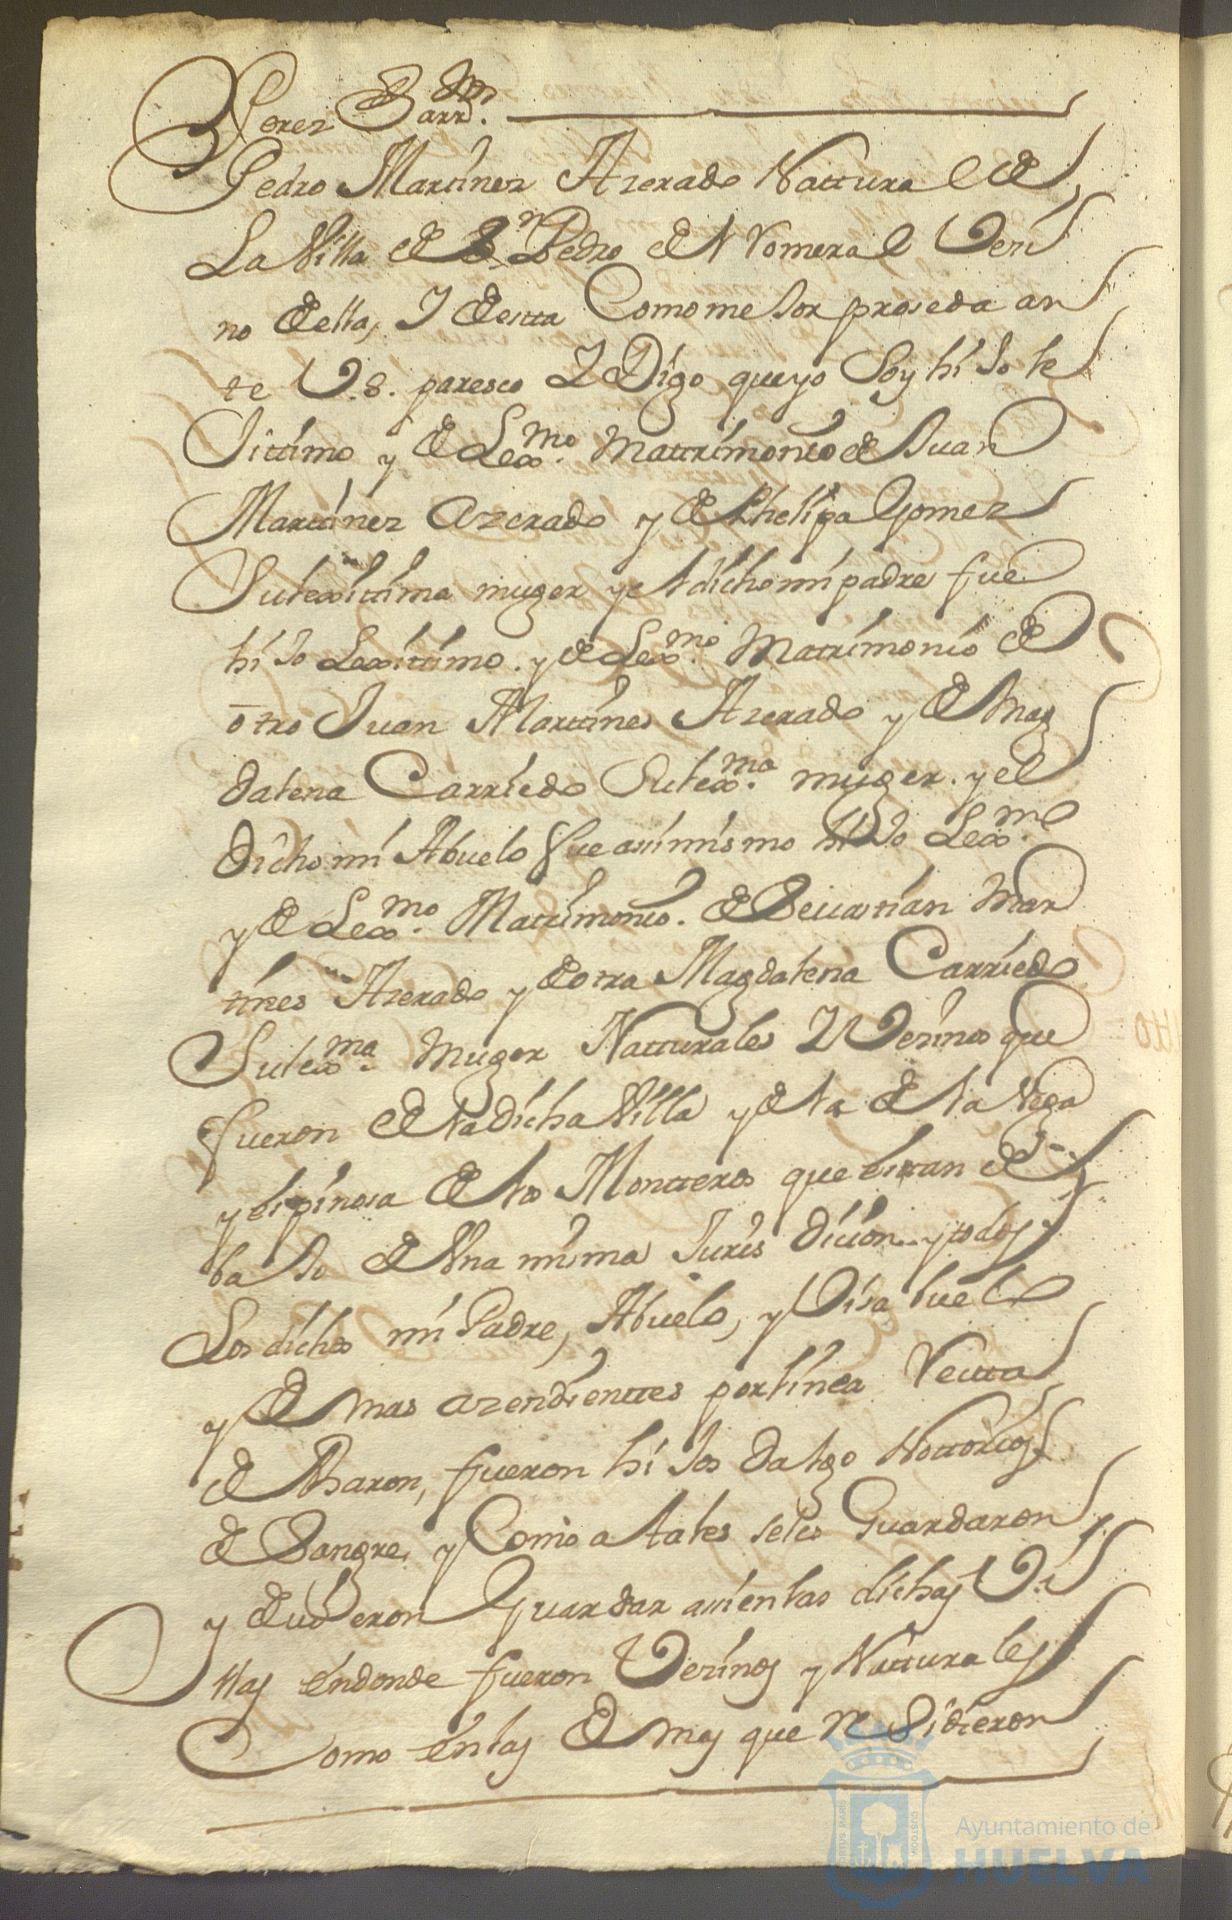 Perez Barr.on
Pedro Martinez Azerado Nattural de
La Villa de Sn Pedro del Romeral Veci
no de ella, Y de esta Como mejor proseda an
te V.S. paresco Y Digo que yo Soy hijo le
Jittimo y de Lexmo. Mattrimonio de Juan
Martinez Azerado y de Phelipa Gomez
Su lexittima muger y el dicho mi padre fue
hijo Lexittimo. y de Lexmo. Matrimonio de
otro Juan Martines Azerado y de Mag
dalena Carriedo Su lexma. muger. y el
dicho mi Abuelo fue asimismo hijo Lexme
y de Lexmo. Matrimonio. de Sevastian Mar
tines Azerado y de otra Magdalena Carriedo
Su lexma. Muger Natturales Y Vezinos que
fueron de la dicha Villa y de la de la Vega
y Espinosa de los Monteros que estan de
bajo de Una misma Juris dicion y todos
Los dichos mi Padre, Abuelo, y Visabuelo
y demas azendienttes por linea Rectta
de Baron, fueron hijos dalgo Nottorios
de Sangre, y Como a tales se les Guardaron
y devieron Guardar asi en las dichas Vi
llas en donde fueron Vezinos y Natturales
Como en las demas que Residieron
Ayuntamiento de
HUELVA